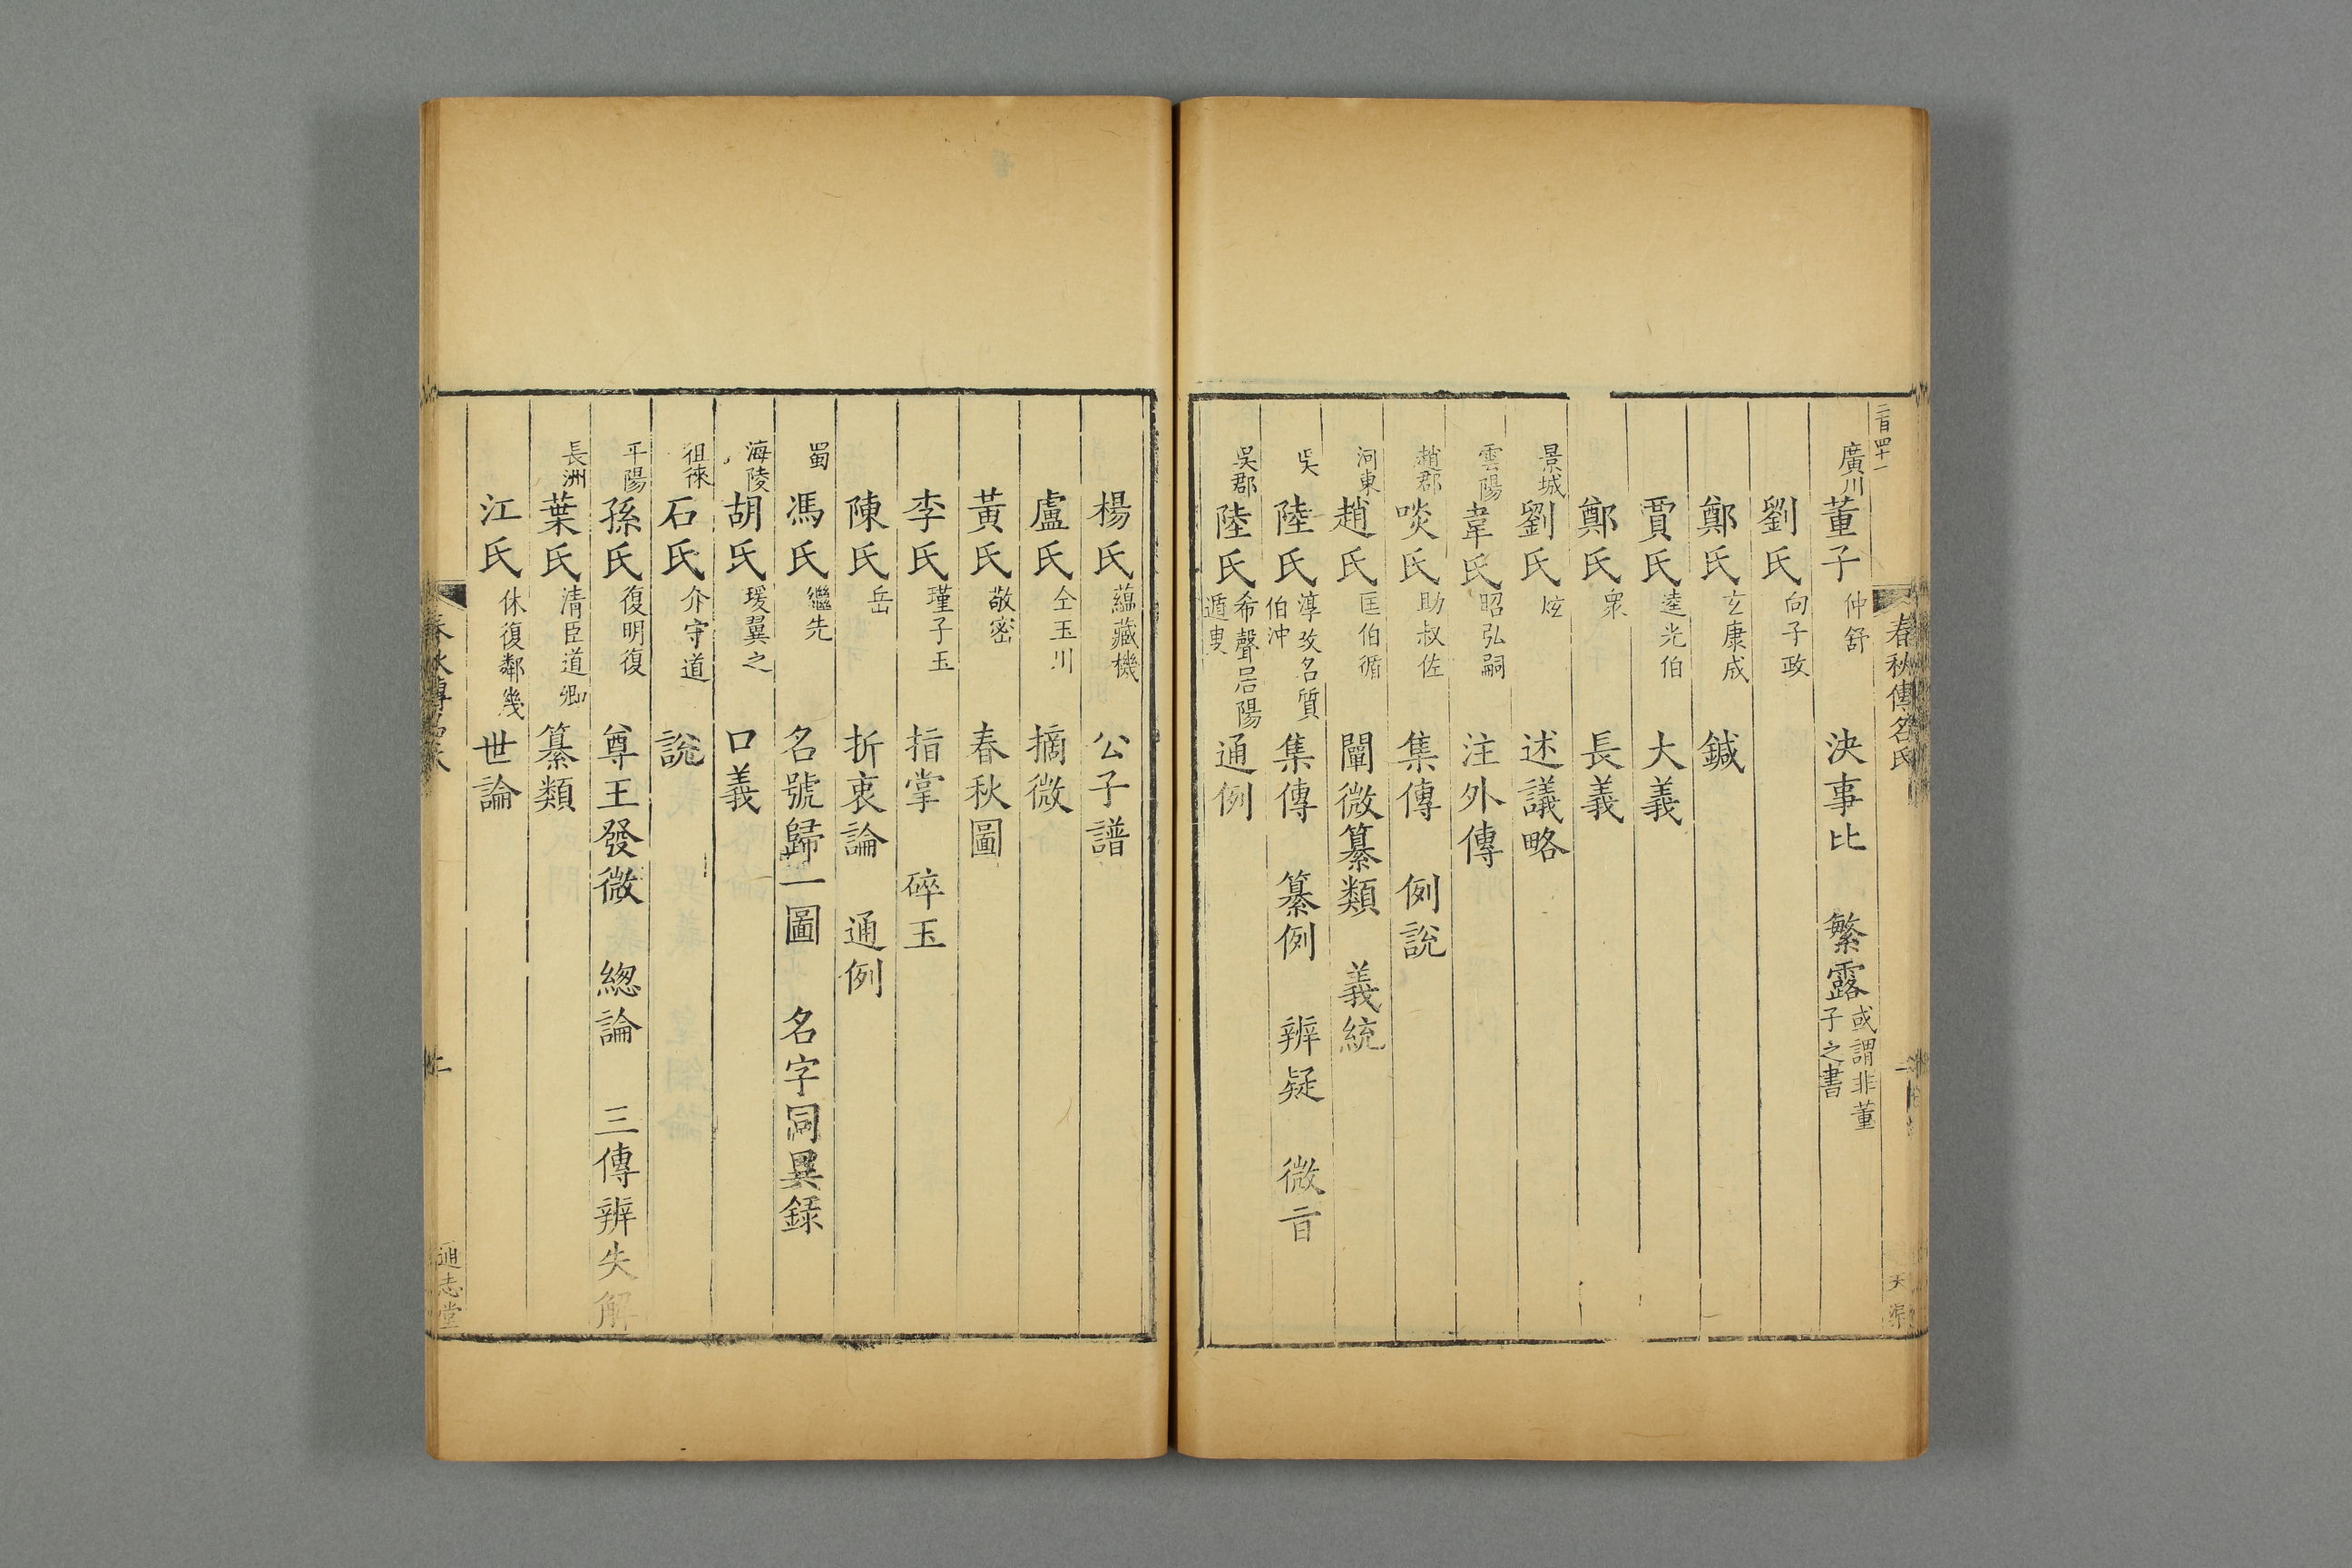 二百四十一
春秋傳名氏
二
廣川董子仲舒 決事比 繁露或謂非董子之書
劉氏向子政
鄭氏玄康成 鍼
賈氏逵光伯 大義
鄭氏衆 長義
景城劉氏炫 述議略
雲陽韋氏昭弘嗣 注外傳
趙郡啖氏助叔佐 集傳 例說
河東趙氏匡伯循 闡微纂類 義統
吳陸氏淳攺名質伯沖 集傳 纂例 辨疑 微㫖
吳郡陸氏希聲居陽遁叟 通例
楊氏蘊藏機 公子譜
盧氏仝玉川 摘微
黃氏敬密 春秋圖
李氏瑾子玉 指掌 碎玉
陳氏岳 折衷論 通例
蜀馮氏繼先 名號歸一圖 名字同異録
海陵胡氏瑗翼之 口義
徂徠石氏介守道 說
平陽孫氏復明復 尊王發微 緫論 三傳辨失解
長洲葉氏清臣道卿 纂類
江氏休復鄰幾 世論
通志堂